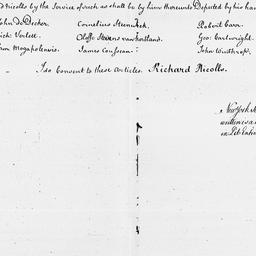 d Nicolls by the Service of such as shall be by him thereunto Deputed by his han
John de Decker. Cornelius Steenwick. Robert Carr.
Nich: Verlett. Oloffe Stevens van Cortland. Geo: Cartwright.
Sam Megapolensis. James Cousseau. John Winthrop.
I do Consent to these Articles. Richard Nicolls.
New York
written is a
in Lib